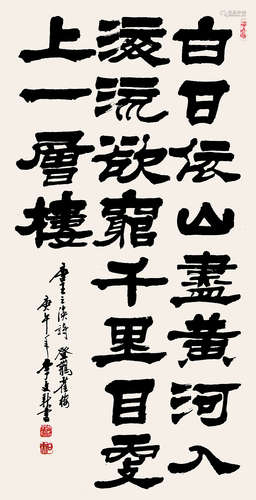 白日依山盡黃河入
海流欲窮千里目更
上一層樓
唐王之渙詩 登鸛雀樓
庚午年李文書